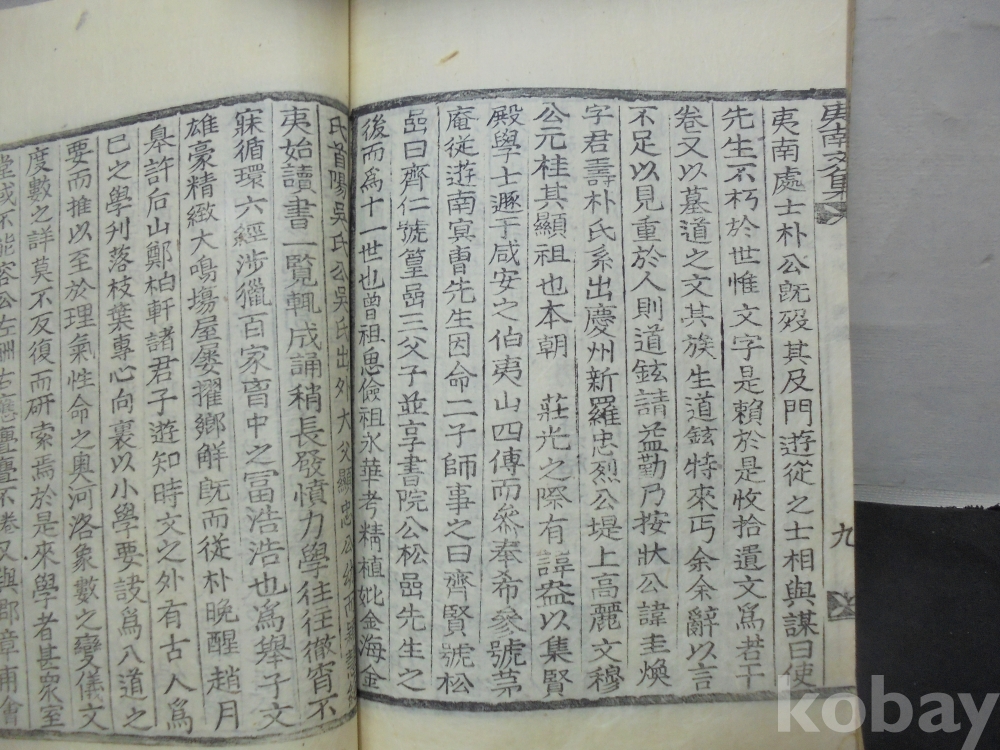 夷南文集
九
夷南處士朴公旣歿其及門遊從之士相與謀曰使
先生不朽於世惟文字是賴於是收拾遺文爲若干
卷又以墓道之文其族生道鉉特來丐余余辭以言
不足以見重於人則道鉉請益勤乃按狀公諱圭煥
字君壽朴氏系出慶州新羅忠烈公堤上高麗文穆
公元桂其顯祖也本朝 莊光之際有諱盎以集賢
殿學士遯于咸安之伯夷山四傳而叅奉希參號茅
庵從遊南冥曹先生因命二子師事之曰齊賢號松
嵒曰齊仁號篁嵒三父子並享書院公松嵒先生之
後而爲十一世也曾祖思儉祖永華考精植妣金海金
氏首陽吳氏公吳氏出外大父顯忠公
夷始讀書一覽輒成誦稍長發憤力學往往徹宵不
寐循環六經涉獵百家畜中之富浩浩也爲舉子文
雄豪精緻大鳴塲屋屢擢鄉解旣而從朴晩醒趙月
皋許后山鄭柏軒諸君子遊知時文之外有古人爲
己之學刋落枝葉專心向裏以小學要訣爲入道之
要而推以至於理氣性命之奧河洛象數之變儀文
度數之詳莫不反復而研索焉於是來學者甚衆室
堂或不能容公左酬右應亹亹不倦又與郡章甫會
kobay